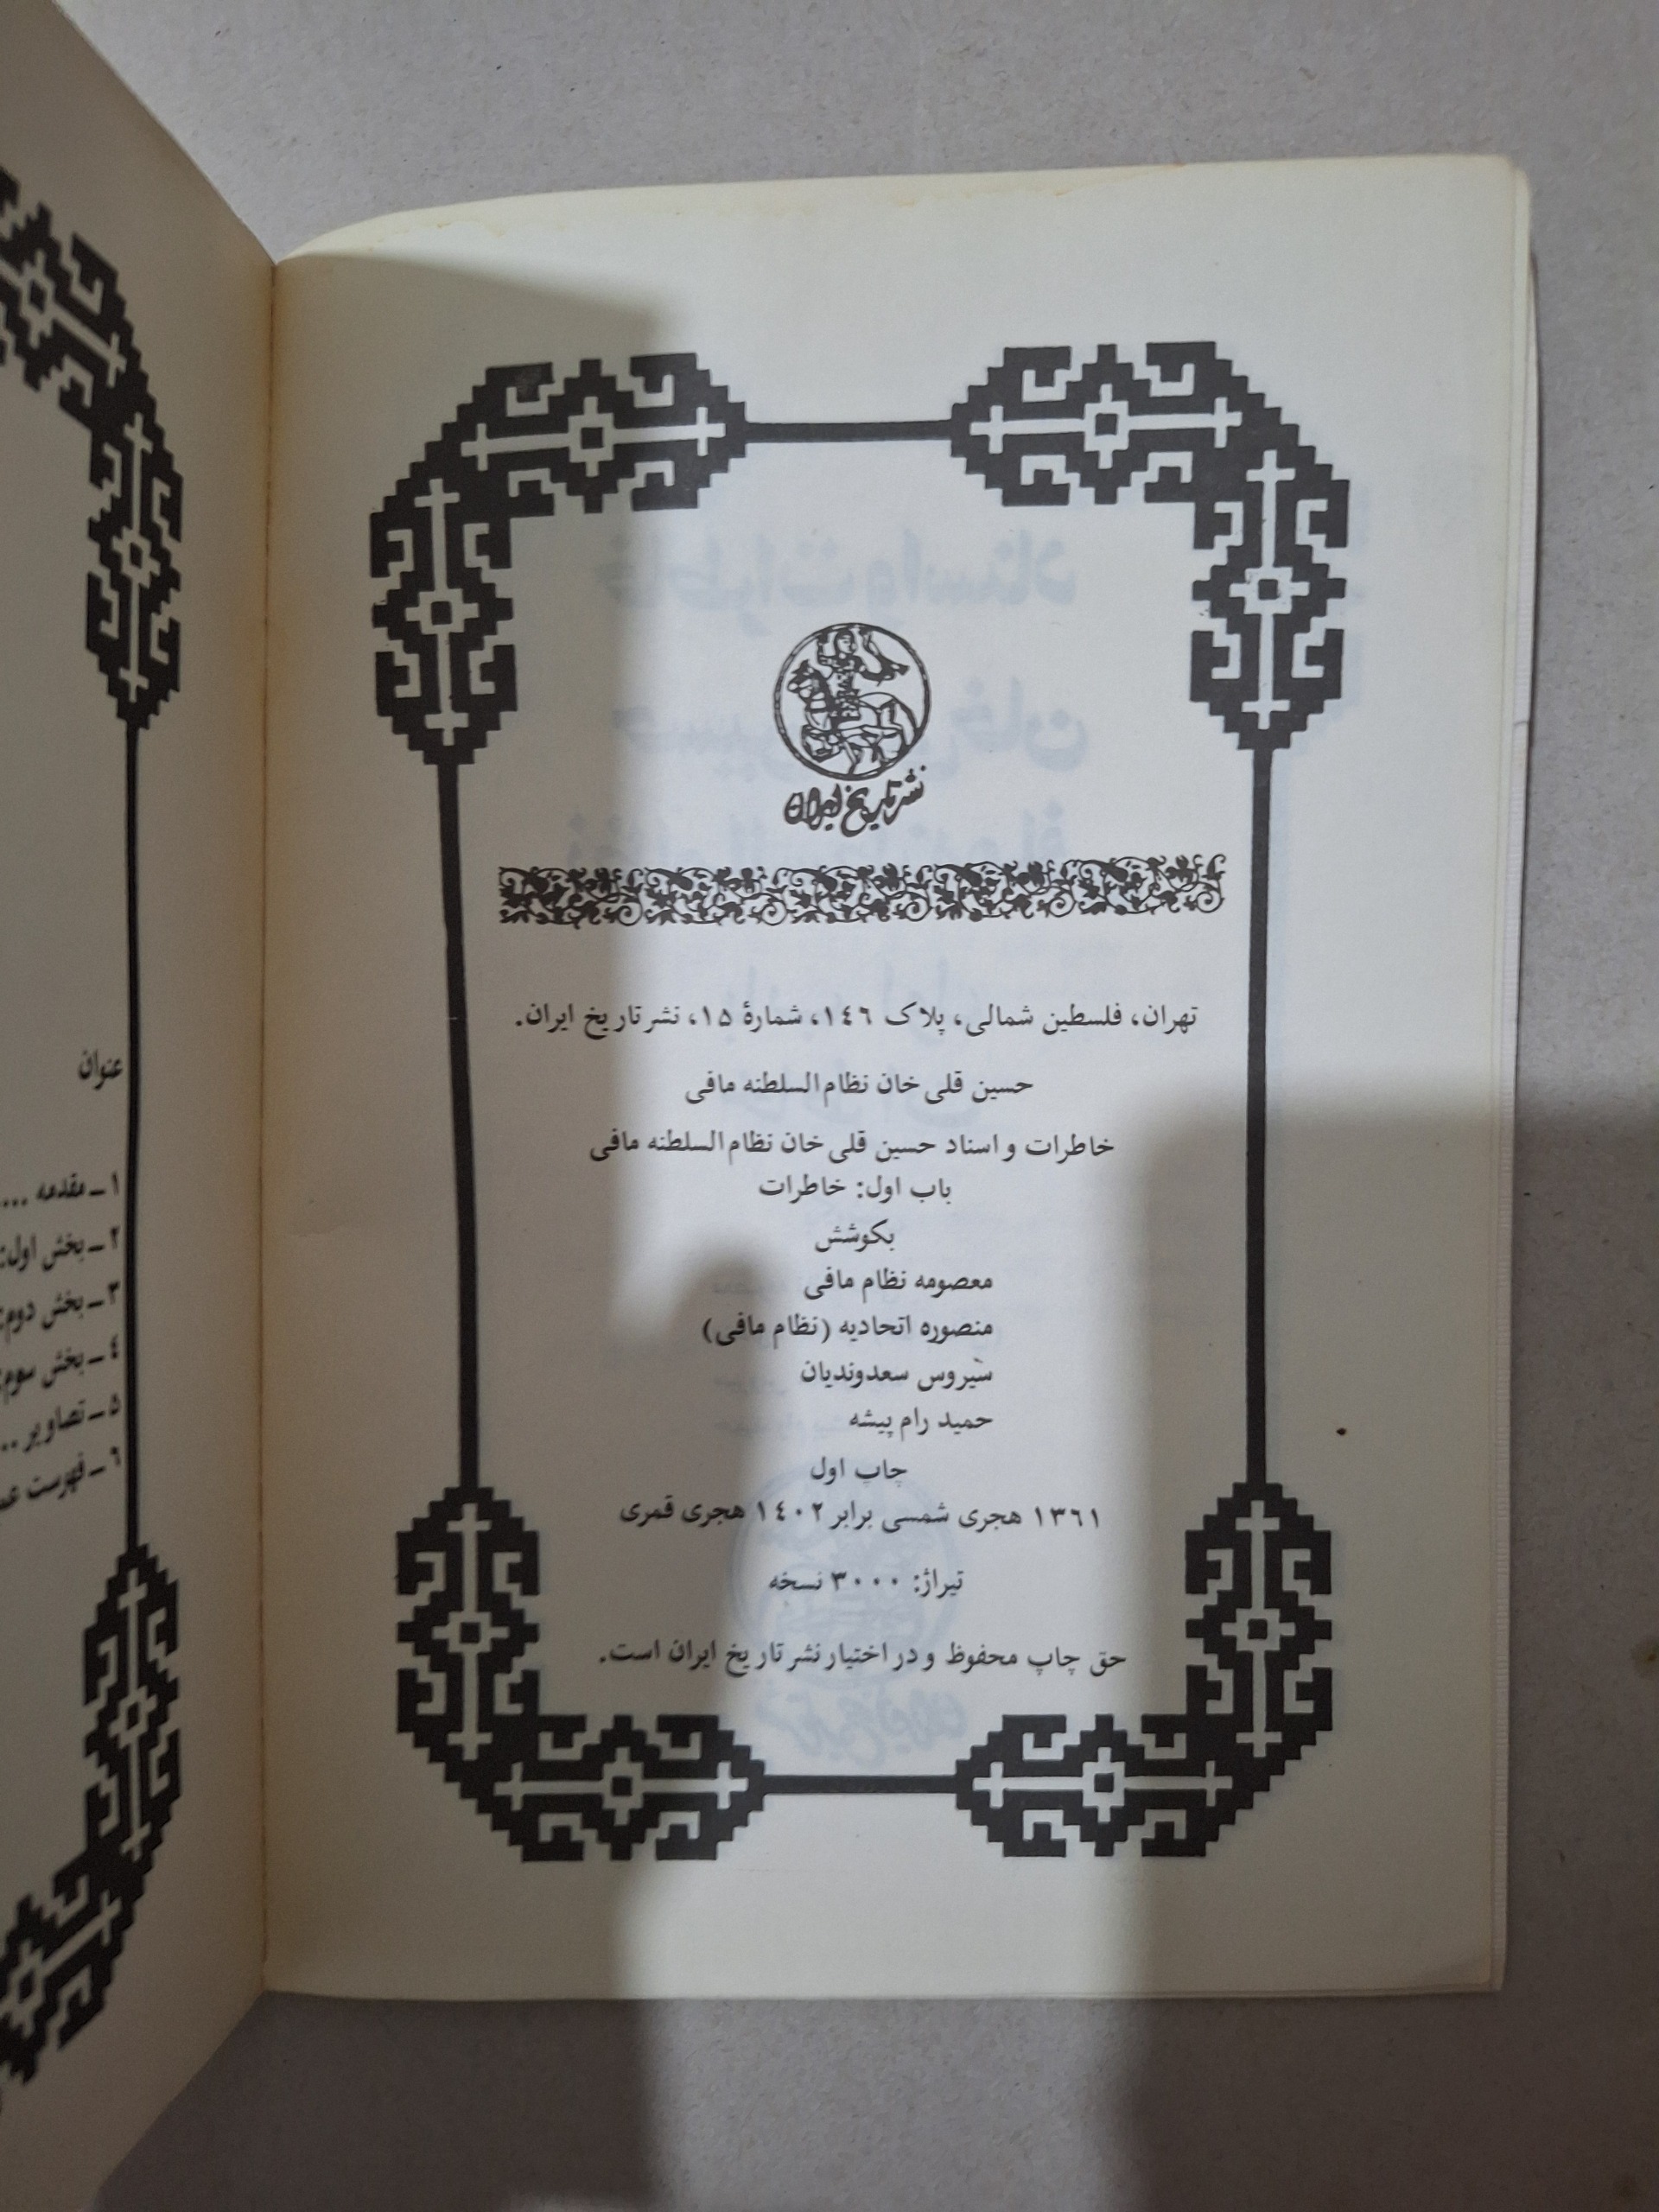 نشر تاریخ ایران
تهران، فلسطین شمالی، پلاک ۱۴۶، شمارهٔ ۱۵، نشر تاریخ ایران.
حسین قلی خان نظام السلطنه مافی
خاطرات و اسناد حسین قلی خان نظام السلطنه مافی
باب اول: خاطرات
بکوشش
معصومه نظام مافی
منصوره اتحادیه (نظام مافی)
سیروس سعدوندیان
حمید رام پیشه
چاپ اول
۱۳۶۱ هجری شمسی برابر ۱۴۰۲ هجری قمری
تیراژ: ۳۰۰۰ نسخه
حق چاپ محفوظ و در اختیار نشر تاریخ ایران است.
عنوان
۱ ــ مقدمه ...
۲ ــ بخش اول:
۳ ــ بخش دوم:
۴ ــ بخش سوم:
۵ ــ تصاویر ..
۶ ــ فهرست